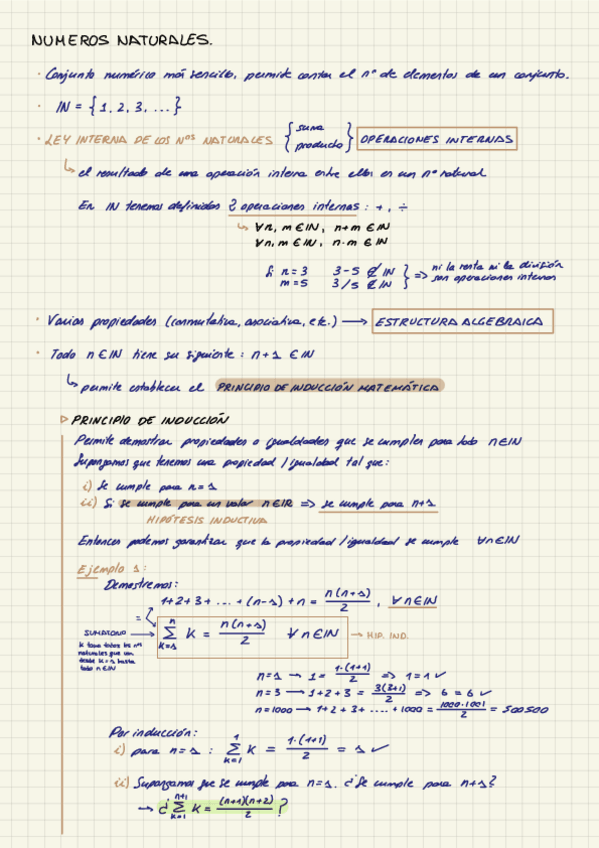 NUMEROS NATURALES.
· Conjunto numérico más sencillo, permite contar el nº de elementos de un conjunto.
· IN = { 1, 2, 3, ... }
· LEY INTERNA DE LOS Nºs NATURALES { suma producto } OPERACIONES INTERNAS
↳ el resultado de una operación interna entre ellos es un nº natural
En IN tenemos definidas 2 operaciones internas : + , ÷
↳ ∀n, m ∈ IN, n+m ∈ IN
∀n, m ∈ IN, n·m ∈ IN
Si n = 3 3-5 ∉ IN } => ni la resta ni la división
m = 5 3/5 ∉ IN son operaciones internas
· Varias propiedades (conmutativa, asociativa, etc.) → ESTRUCTURA ALGEBRAICA
· Todo n ∈ IN tiene su siguiente : n+1 ∈ IN
↳ permite establecer el PRINCIPIO DE INDUCCIÓN MATEMÁTICA
▷ PRINCIPIO DE INDUCCIÓN
Permite demostrar propiedades o igualdades que se cumplen para todo n ∈ IN
Supongamos que tenemos una propiedad / igualdad tal que:
i) Se cumple para n = 1
ii) Si se cumple para un valor n ∈ IR => se cumple para n+1
HIPÓTESIS INDUCTIVA
Entonces podemos garantizar que la propiedad / igualdad se cumple ∀n ∈ IN
Ejemplo 1:
Demostremos:
1+2+3+ ... + (n-1) + n = n(n+1)/2 , ∀n ∈ IN
=
SUMATORIO → ∑_{k=1}^{n} K = n(n+1)/2 ∀n ∈ IN → HIP. IND.
K toma todos los nºs
naturales que van
desde K=1 hasta
todo n ∈ IN
n=1 → 1 = 1·(1+1)/2 => 1=1 ✓
n=3 → 1+2+3 = 3(3+1)/2 => 6=6 ✓
n=1000 → 1+2+3+ .... +1000 = 1000·1001/2 = 500500
Por inducción:
i) para n=1 : ∑_{k=1}^{1} K = 1·(1+1)/2 = 1 ✓
ii) Supongamos que se cumple para n=1. ¿Se cumple para n+1?
→ ¿ ∑_{k=1}^{n+1} K = (n+1)(n+2)/2 ?